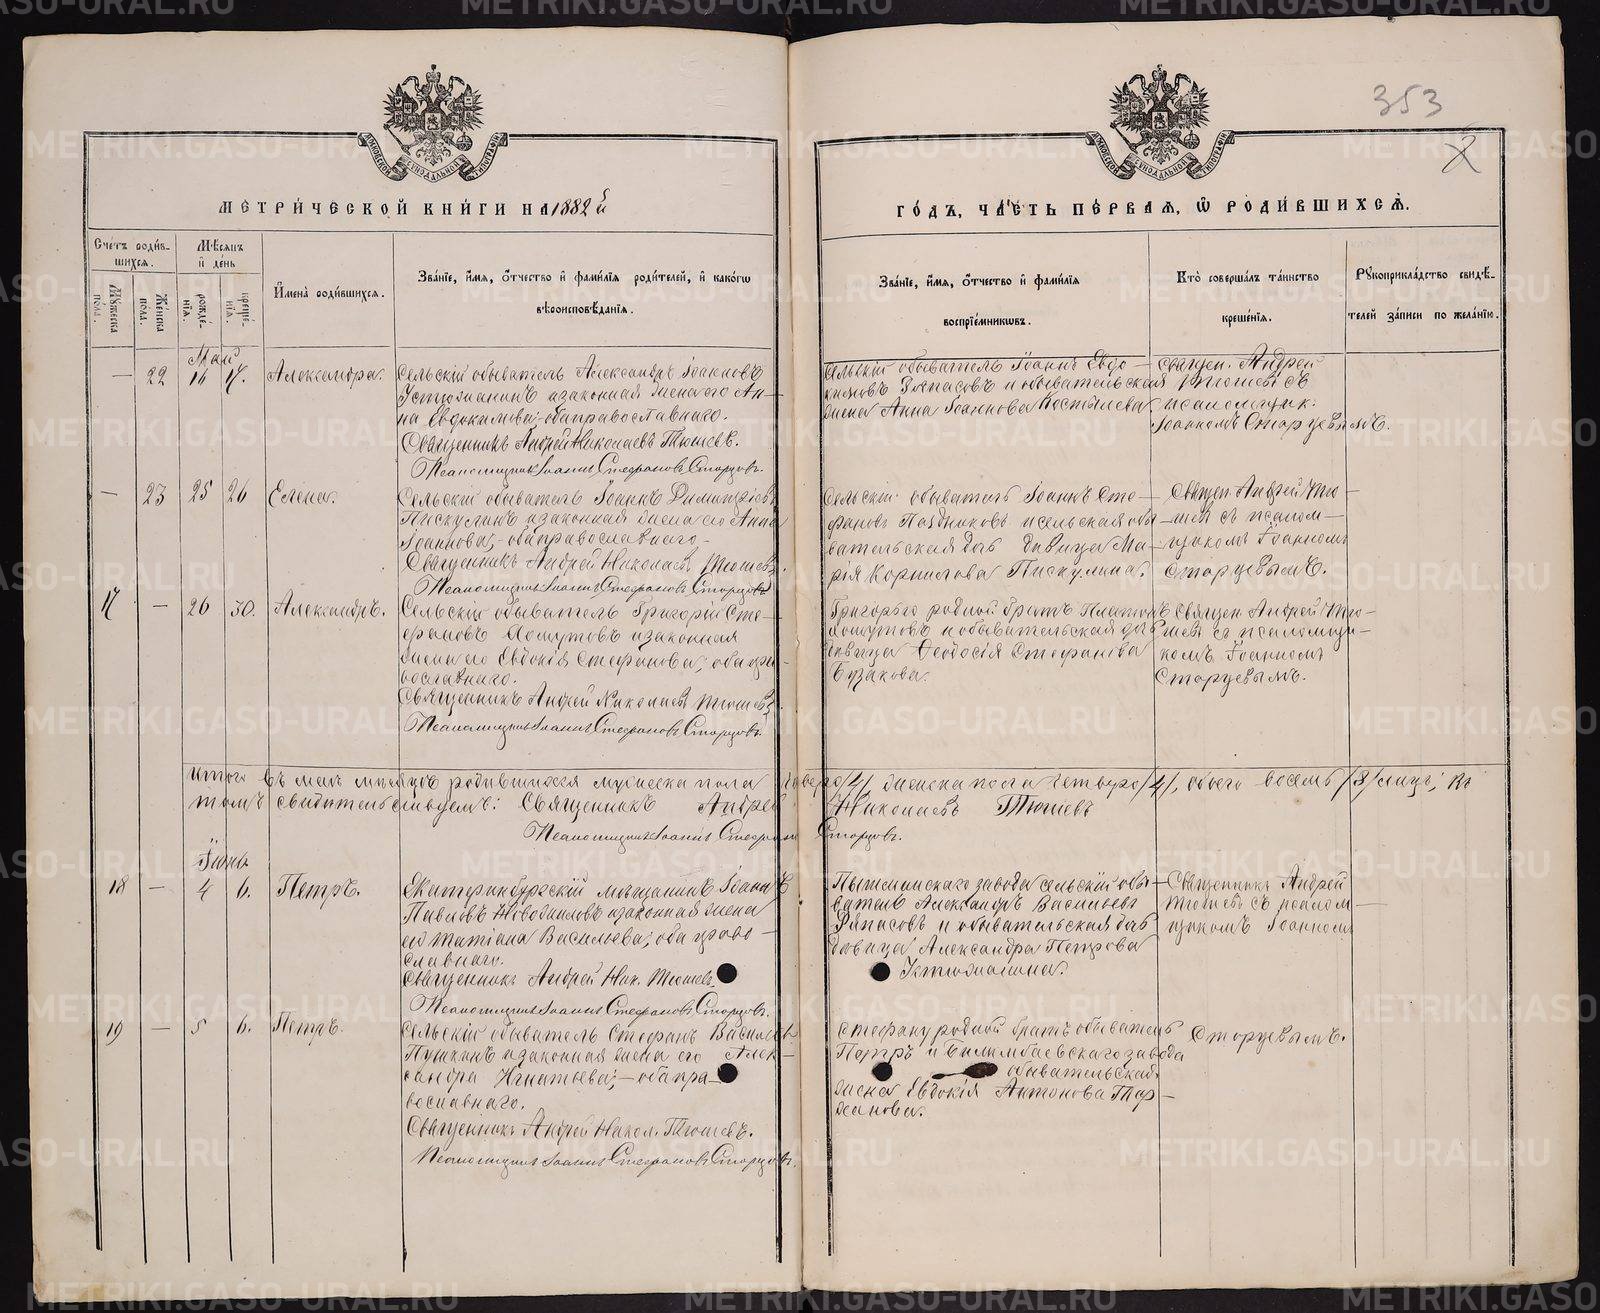 353
МЕТРИЧЕСКОЙ КНИГИ НА 1882 й
ГОДЪ, ЧАСТЬ ПЕРВАЯ, Ѡ РОДИВШИХСЯ.
Счетъ родив-
шихся.
Мѣсяцъ
и день
Мужеска пола.
Женска пола.
рожде-
нія.
креще-
нія.
Имена родившихся.
Званіе, имя, отчество и фамилія родителей, и какогѡ
вѣроисповѣданія.
Званіе, имя, отчество и фамилія
воспріемниковъ.
Кто совершалъ таинство
крещенія.
Рукоприкладство свидѣ-
телей записи по желанію.
Май
— 22 16 17. Александра.
Сельскій обыватель Александръ Іоанновъ
Устюжанинъ и законная жена его Ан-
на Евдокимова, оба православнаго.
Священникъ Андрей Николаевъ Тюшевъ.
Псаломщикъ Іоаннъ Стефановъ Старцовъ.
Сельскій обыватель Іоаннъ Евдо-
кимовъ Ряпасовъ и обывательская
жена Анна Іоаннова Костылева.
Священ. Андрей
Тюшевъ съ
псаломщик.
Іоанномъ Старцевымъ.
— 23 25 26 Елена.
Сельскій обыватель Іоаннъ Димитріевъ
Пискулинъ и законная жена его Анна
Іоаннова, оба православнаго.
Священникъ Андрей Николаевъ Тюшевъ.
Псаломщикъ Іоаннъ Стефановъ Старцовъ.
Сельскій обыватель Іоаннъ Сте-
фановъ Поздняковъ и сельская обы-
вательская дочь дѣвица Ма-
рія Корнилова Пискулина.
Священ. Андрей Тю-
шевъ съ псалом-
щикомъ Іоанномъ
Старцевымъ.
17 — 26 30. Александръ.
Сельскій обыватель Григорій Сте-
фановъ Лошутовъ и законная
жена его Евдокія Стефанова, оба пра-
вославнаго.
Священникъ Андрей Николаевъ Тюшевъ.
Псаломщикъ Іоаннъ Стефановъ Старцовъ.
Григорью родной братъ Платонъ
Лошутовъ и обывательская дочь
дѣвица Ѳеодосія Стефанова
Бузакова.
Священ. Андрей Тю-
шевъ съ псаломщи-
комъ Іоанномъ
Старцевымъ.
Итого въ маѣ мѣсяцѣ родившихся мужеска пола четверо /4/, женска пола четверо /4/, обоего восемь /8/ лицъ; въ
томъ свидѣтельствуемъ: Священникъ Андрей Николаевъ Тюшевъ
Псаломщикъ Іоаннъ Стефановъ Старцовъ.
Іюнь
18 — 4 6. Петръ.
Екатеринбургскій мѣщанинъ Іоаннъ
Павловъ Новожиловъ и законная жена
его Татіана Васильева; оба право-
славнаго.
Священникъ Андрей Ник. Тюшевъ.
Псаломщикъ Іоаннъ Стефановъ Старцовъ.
Пышминскаго завода сельскій обы-
ватель Александръ Васильевъ
Ряпасовъ и обывательская дочь
дѣвица Александра Петрова
Устюжанина.
Священникъ Андрей
Тюшевъ съ псалом-
щикомъ Іоанномъ
19 — 5 6. Петръ.
Сельскій обыватель Стефанъ Васильевъ
Пушкинъ и законная жена его Алек-
сандра Игнатьева; — оба пра-
вославнаго.
Священникъ Андрей Никол. Тюшевъ.
Псаломщикъ Іоаннъ Стефановъ Старцовъ.
Стефану родной братъ обыватель
Петръ и Билимбаевскаго завода
обывательская
жена Евдокія Антонова Тар-
ханова.
Старцевымъ.
METRIKI.GASO-URAL.RU